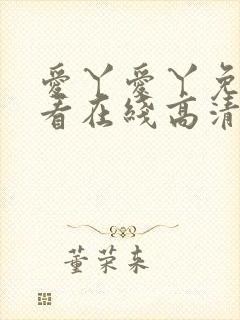 愛丫愛丫免
看在綫高清
董荣来